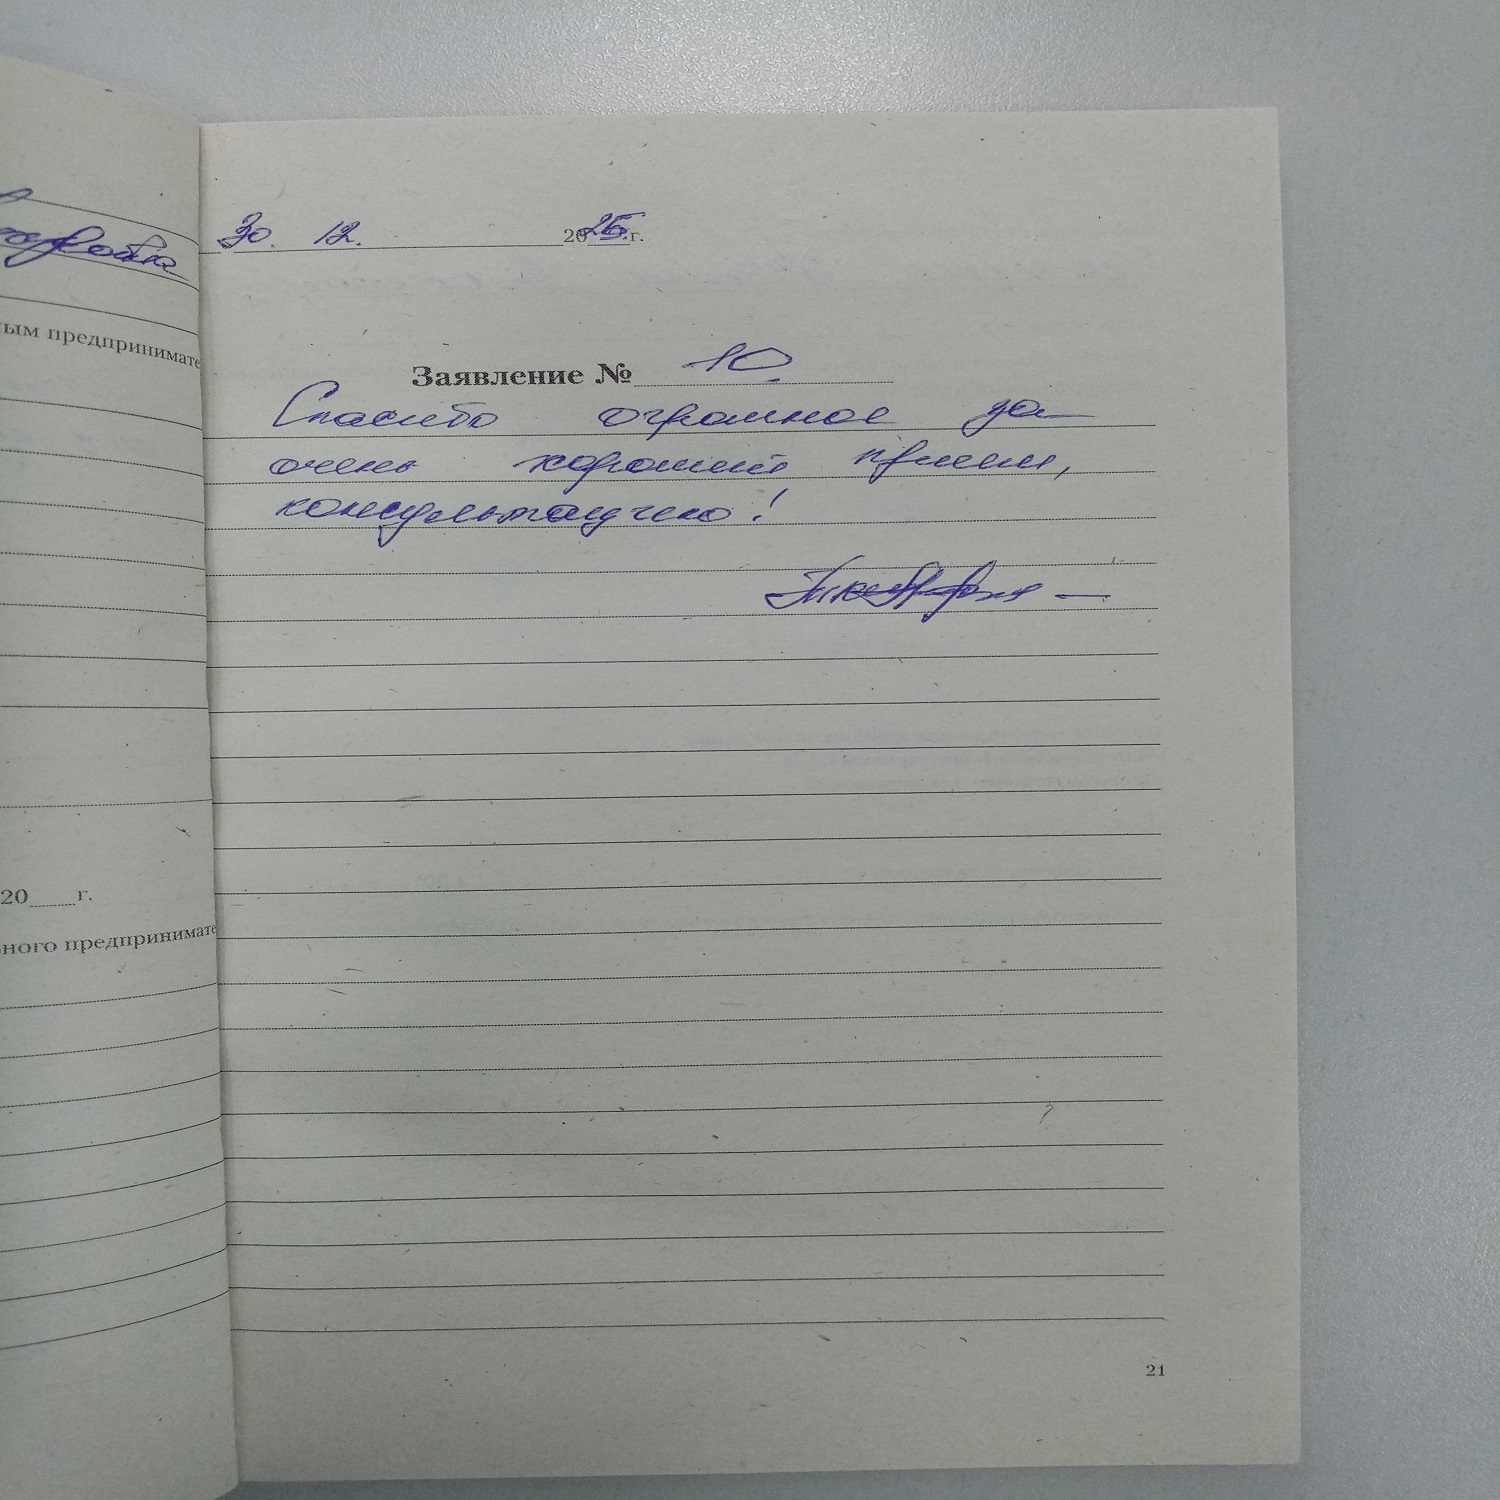 ным предпринимате
20 г.
ного предпринимате
30. 12. 2025 г.
Заявление № 10
Спасибо огромное за
очень хороший прием,
консультацию!
21